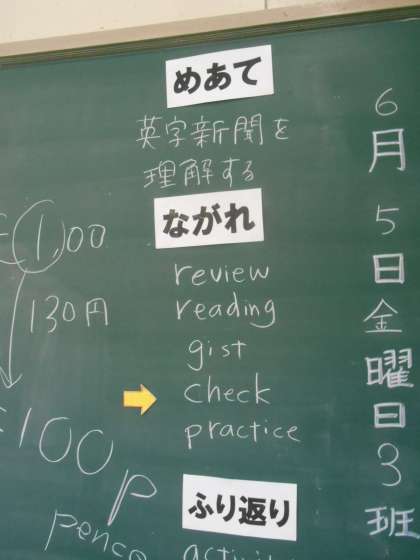 めあて
英字新聞を
理解する
ながれ
review
reading
gist
check
practice
ふり返り
6月5日金曜日3班
£1.00
130円
100p